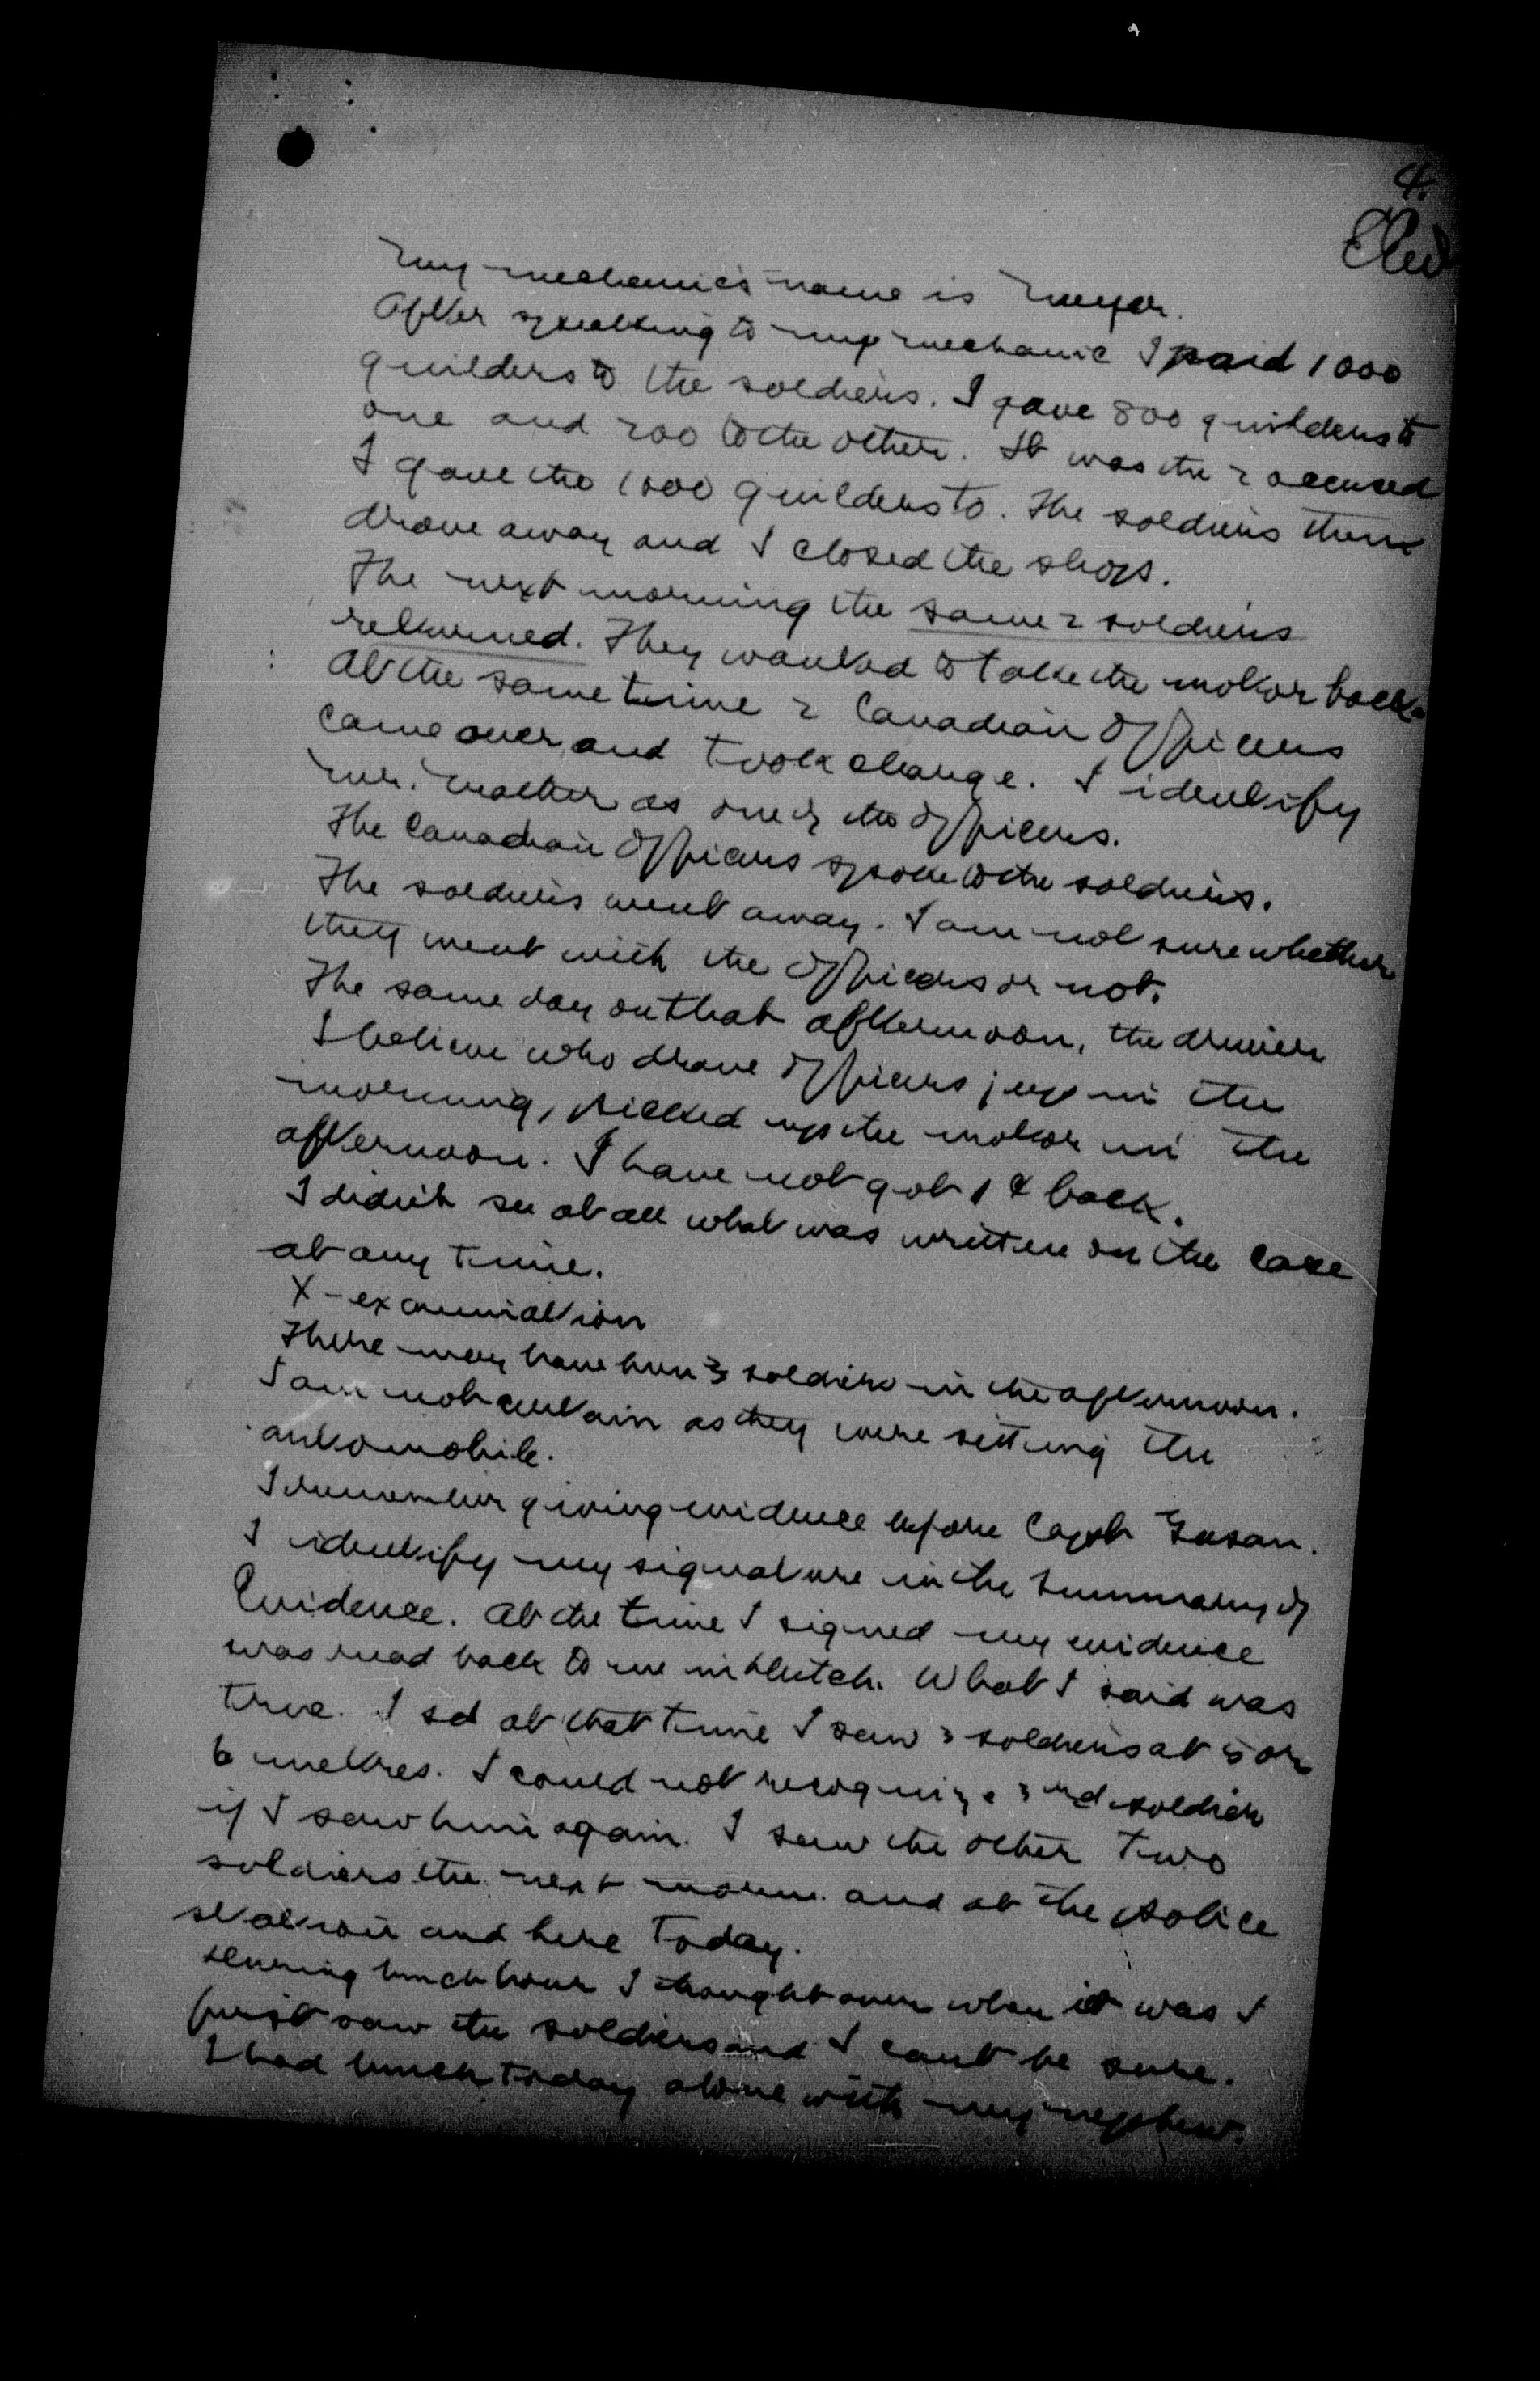 4.
My mechanic's name is Meyer.
After speaking to my mechanic I paid 1000
guilders to the soldiers. I gave 800 guilders to
one and 200 to the other. It was the 2 accused
I gave the 1000 guilders to. The soldiers then
drove away and I closed the shop.
The next morning the same 2 soldiers
returned. They wanted to take the motor back.
At the same time 2 Canadian officers
came over and took charge. I identify
Mr. as one of the officers.
The Canadian officers spoke to the soldiers.
The soldiers went away. I am not sure whether
they went with the officers or not.
The same day on that afternoon, the driver
I believe who drove officers jeep in the
morning, picked up the motor in the
afternoon. I have not got 1 ¢ back.
I didn't see at all what was written on the case
at any time.
X-examination
There may have been 3 soldiers in the afternoon.
I am not certain as they were sitting the
automobile.
I remember giving evidence before Capt
I identify my signature in the Summary of
Evidence. At the time I signed my evidence
was read back to me in Dutch. What I said was
true. I sd at that time I saw 3 soldiers at 5 or
6 metres. I could not recognize 3rd soldier
if I saw him again. I saw the other two
soldiers the next morn. and at the police
station and here today.
During lunch hour I thought over when it was I
first saw the soldiers and I cant be sure.
I had lunch today alone with my nephew.